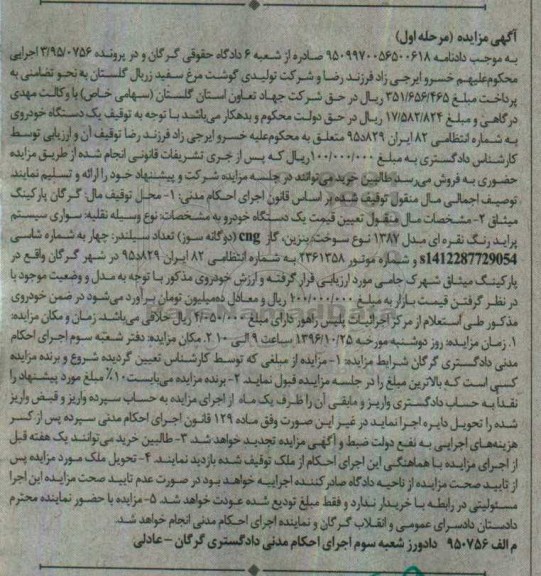 آگهی مزایده (مرحله اول)
به موجب دادنامه ۹۵۰۹۹۷۰۰۵۶۵۰۰۶۱۸ صادره از شعبه ۶ دادگاه حقوقی گرگان و در پرونده ۳/۹۵/۰۷۵۶ اجرایی
محکوم‌علیهم خسرو ایرجی زاد فرزند رضا و شرکت تولیدی گوشت مرغ سفید زربال گلستان به نحو تضامنی به
پرداخت مبلغ ۳۵۱/۶۵۶/۴۶۵ ریال در حق شرکت جهاد تعاون استان گلستان (سهامی خاص) با وکالت مهدی
درگاهی و مبلغ ۱۷/۵۸۲/۸۲۴ ریال در حق دولت محکوم و بدهکار می‌باشد با توجه به توقیف یک دستگاه خودروی
به شماره انتظامی ۸۲ ایران ۸۲۹د۹۵ متعلق به محکوم‌علیه خسرو ایرجی زاد فرزند رضا توقیف آن و ارزیابی توسط
کارشناس دادگستری به مبلغ ۱۰۰/۰۰۰/۰۰۰ ریال که پس از جری تشریفات قانونی انجام شده از طریق مزایده
حضوری به فروش می‌رسد طالبین خرید می‌توانند در جلسه مزایده شرکت و پیشنهاد خود را ارائه و تسلیم نمایند
توصیف اجمالی مال منقول توقیف شده بر اساس قانون اجرای احکام مدنی: ۱- محل توقیف مال: گرگان پارکینگ
میثاق ۲- مشخصات مال منقول تعیین قیمت یک دستگاه خودرو به مشخصات: نوع وسیله نقلیه: سواری سیستم
پراید رنگ نقره ای مدل ۱۳۸۷ نوع سوخت بنزین، گاز cng (دوگانه سوز) تعداد سیلندر: چهار به شماره شاسی
s1412287729054 و شماره موتور ۲۳۶۱۳۵۸ به شماره انتظامی ۸۲ ایران ۸۲۹د۹۵ در شهر گرگان واقع در
پارکینگ میثاق شهرک جامی مورد ارزیابی قرار گرفته و ارزش خودروی مذکور با توجه به مدل و وضعیت موجود با
در نظر گرفتن قیمت بازار به مبلغ ۱۰۰/۰۰۰/۰۰۰ ریال و معادل ده‌میلیون تومان برآورد می‌شود در ضمن خودروی
مذکور طی استعلام از مرکز اجرائیات پلیس راهور دارای مبلغ ریال خلافی می‌باشد. زمان و مکان مزایده:
۱. زمان مزایده: روز دوشنبه مورخه ۱۳۹۶/۱۰/۲۵ ساعت ۹ الی ۱۰ ۲. مکان مزایده: دفتر شعبه سوم اجرای احکام
مدنی دادگستری گرگان شرایط مزایده: ۱- مزایده از مبلغی که توسط کارشناس تعیین گردیده شروع و برنده مزایده
کسی است که بالاترین مبلغ را در جلسه مزایده قبول نماید. ۲- برنده مزایده می‌بایست ۱۰٪ مبلغ مورد پیشنهاد را
نقداً به حساب دادگستری واریز و مابقی آن را ظرف یک ماه از اجرای مزایده به حساب سپرده واریز و قبض واریز
شده را تحویل دایره اجرا نماید در غیر این صورت وفق ماده ۱۲۹ قانون اجرای احکام مدنی سپرده پس از کسر
هزینه‌های اجرایی به نفع دولت ضبط و آگهی مزایده تجدید خواهد شد. ۳- طالبین خرید می‌توانند یک هفته قبل
از اجرای مزایده با هماهنگی این اجرای احکام از ملک توقیف شده بازدید نمایند. ۴- تحویل ملک مورد مزایده پس
از تایید صحت مزایده از ناحیه دادگاه صادرکننده اجراییه خواهد بود در صورت عدم تایید صحت مزایده این اجرا
مسئولیتی در رابطه با خریدار ندارد و فقط مبلغ تودیع شده عودت خواهد شد. ۵- مزایده با حضور نماینده محترم
دادستان دادسرای عمومی و انقلاب گرگان و نماینده اجرای احکام مدنی انجام خواهد شد.
م الف ۹۵۰۷۵۶ دادورز شعبه سوم اجرای احکام مدنی دادگستری گرگان - عادلی